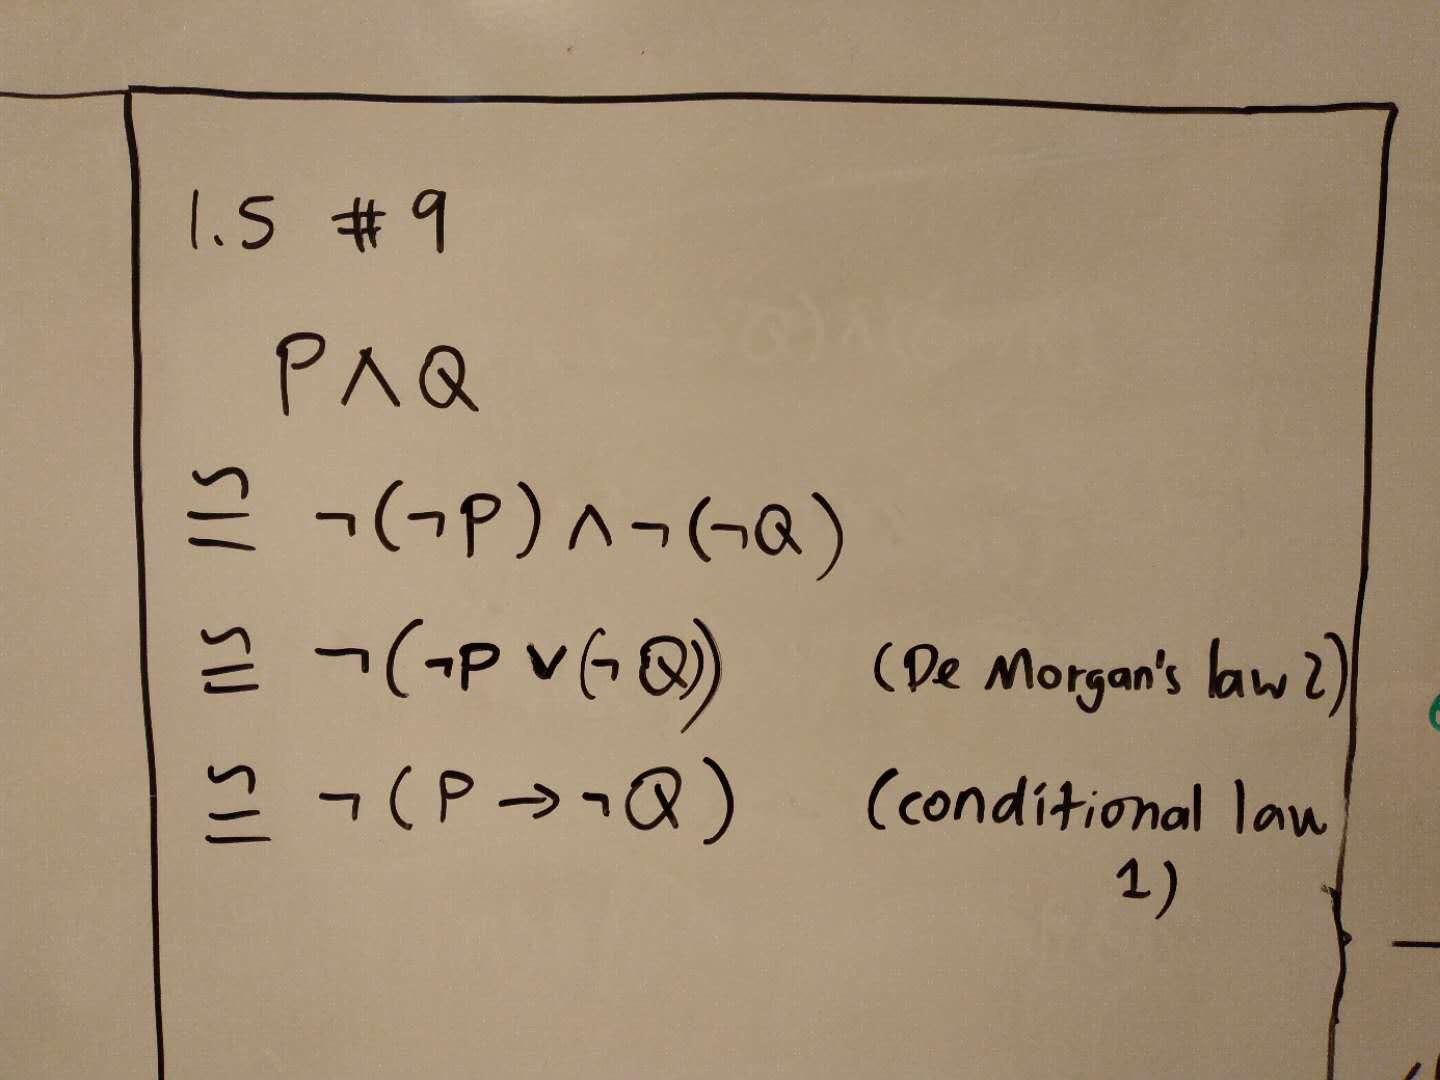 1.5 #9
P∧Q
≅ ¬(¬P)∧¬(¬Q)
≅ ¬(¬P∨(¬Q)) (De Morgan's law 2)
≅ ¬(P→¬Q) (conditional law
1)